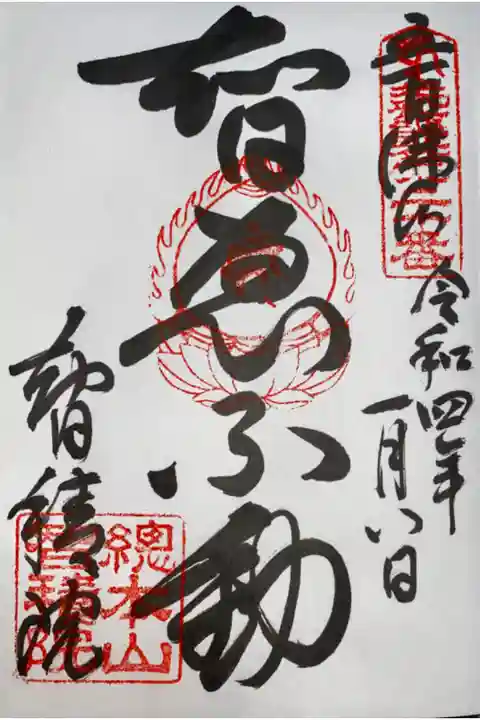 令和四年
一月八日
智恵不動
智積院
總本山
智積院